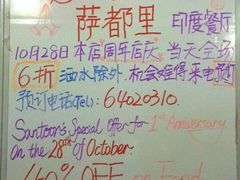 萨都里 印度餐厅
10月28日本店周年店庆 当天全场
6折 酒水除外,机会难得来电预
预订电话Tel: 64020310.
Santoor's Special Offer for 1st Anniversary
on the 28th of October.
40% OFF on Food